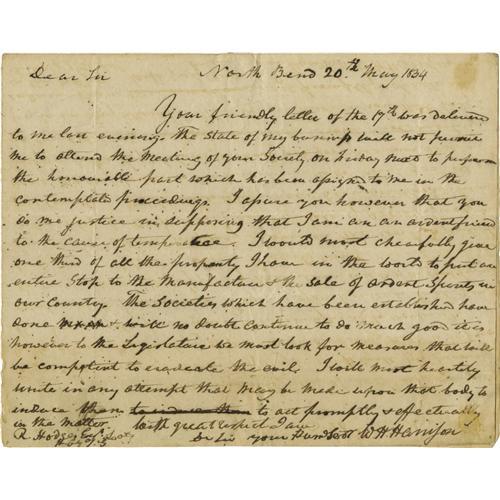 Dear Sir North Bend 20th May 1834
Your friendly letter of the 17th was delivered
to me last evening. the state of my business will not permit
me to attend the Meeting of your Society on Friday next to perform
the honourable part which has been assigned to me in the
contemplated proceedings. I assure you however that you
do me justice in supposing that I am an an ardent friend
to the cause of temperance. I would most cheerfully give
one third of all the property I have in the world to put an
entire stop to the Manufacture & the sale of ardent Spirits in
our country. The Societies which have been established have
done & will no doubt continue to do much good it is
however to the Legislature we must look for measures that will
be competent to eradicate the evil. I will most heartily
unite in any attempt that may be made upon that body to
induce them to induce them to act promptly & effectually
in the matter. With great respect I am
R Hodges Esq Dr Sir your Humb Servt W H Harrison